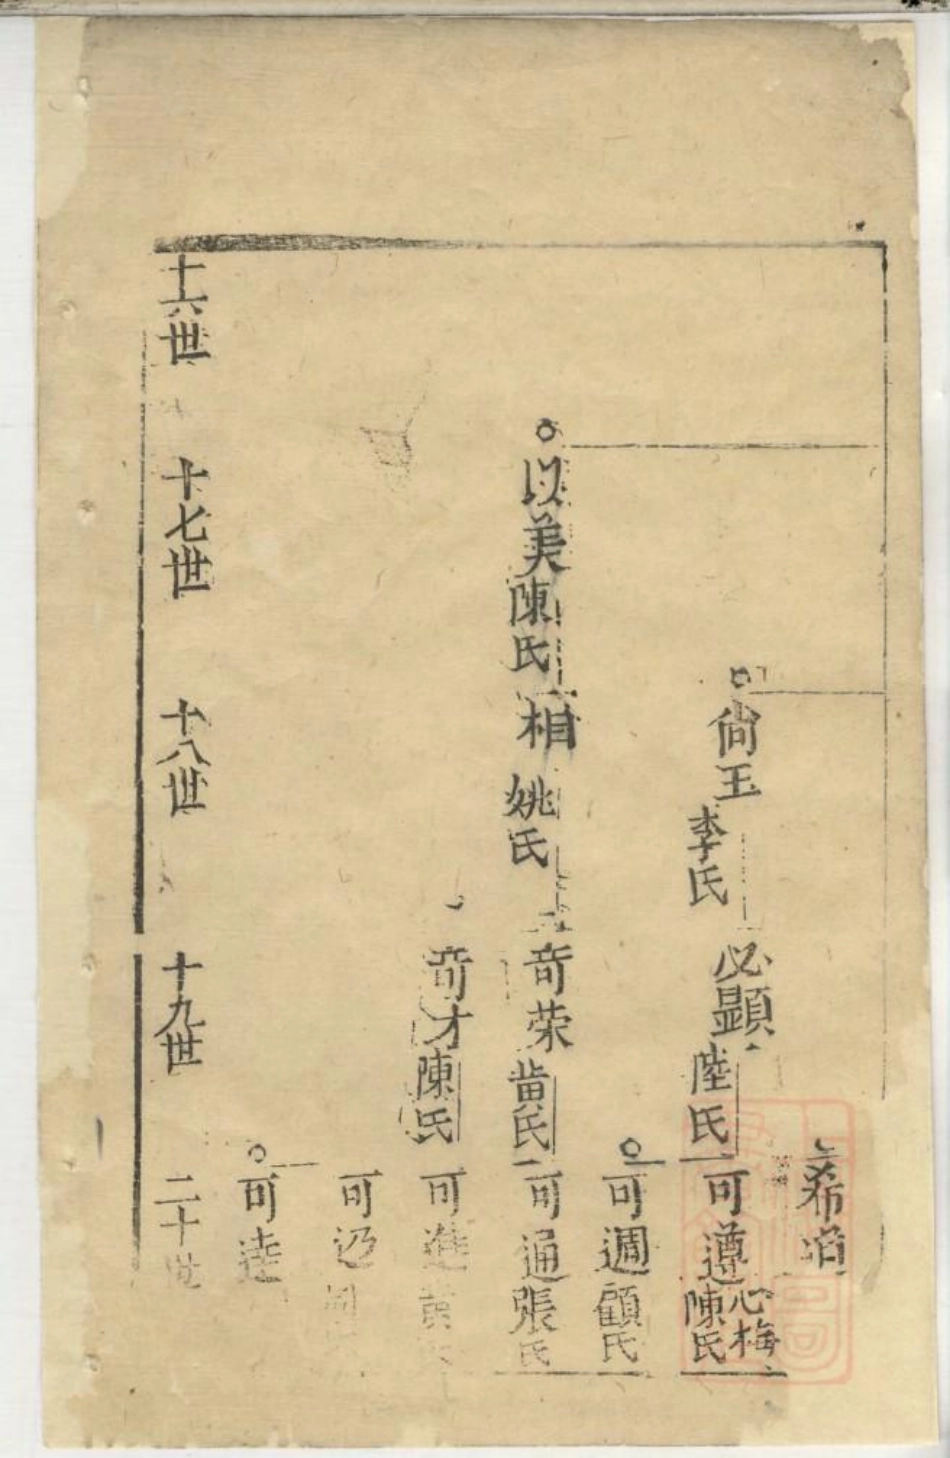 希道
尙玉
李氏
必顯
陸氏
可遵
心梅
陳氏
可週
顧氏
以美
陳氏
相
姚氏
奇荣
黄氏
可通
張氏
奇才
陳氏
可進
黄
可
可逵
十六世
十七世
十八世
十九世
二十世